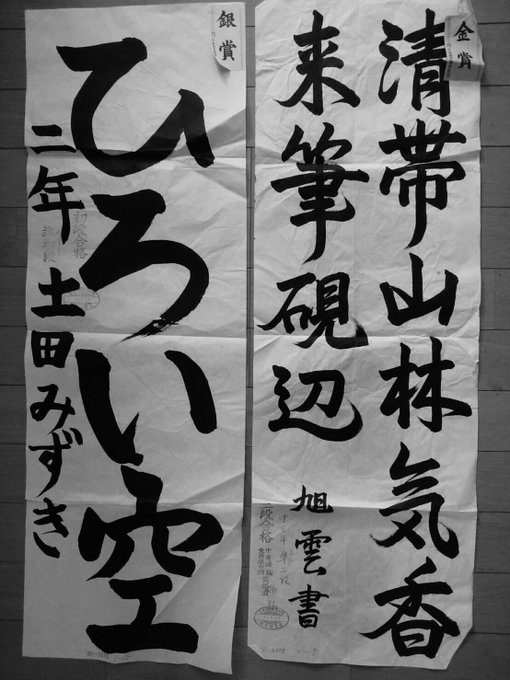 金賞
清帯山林気香
来筆硯辺
旭雲書
銀賞
ひろい空
二年 土田みずき
初段合格
段合格